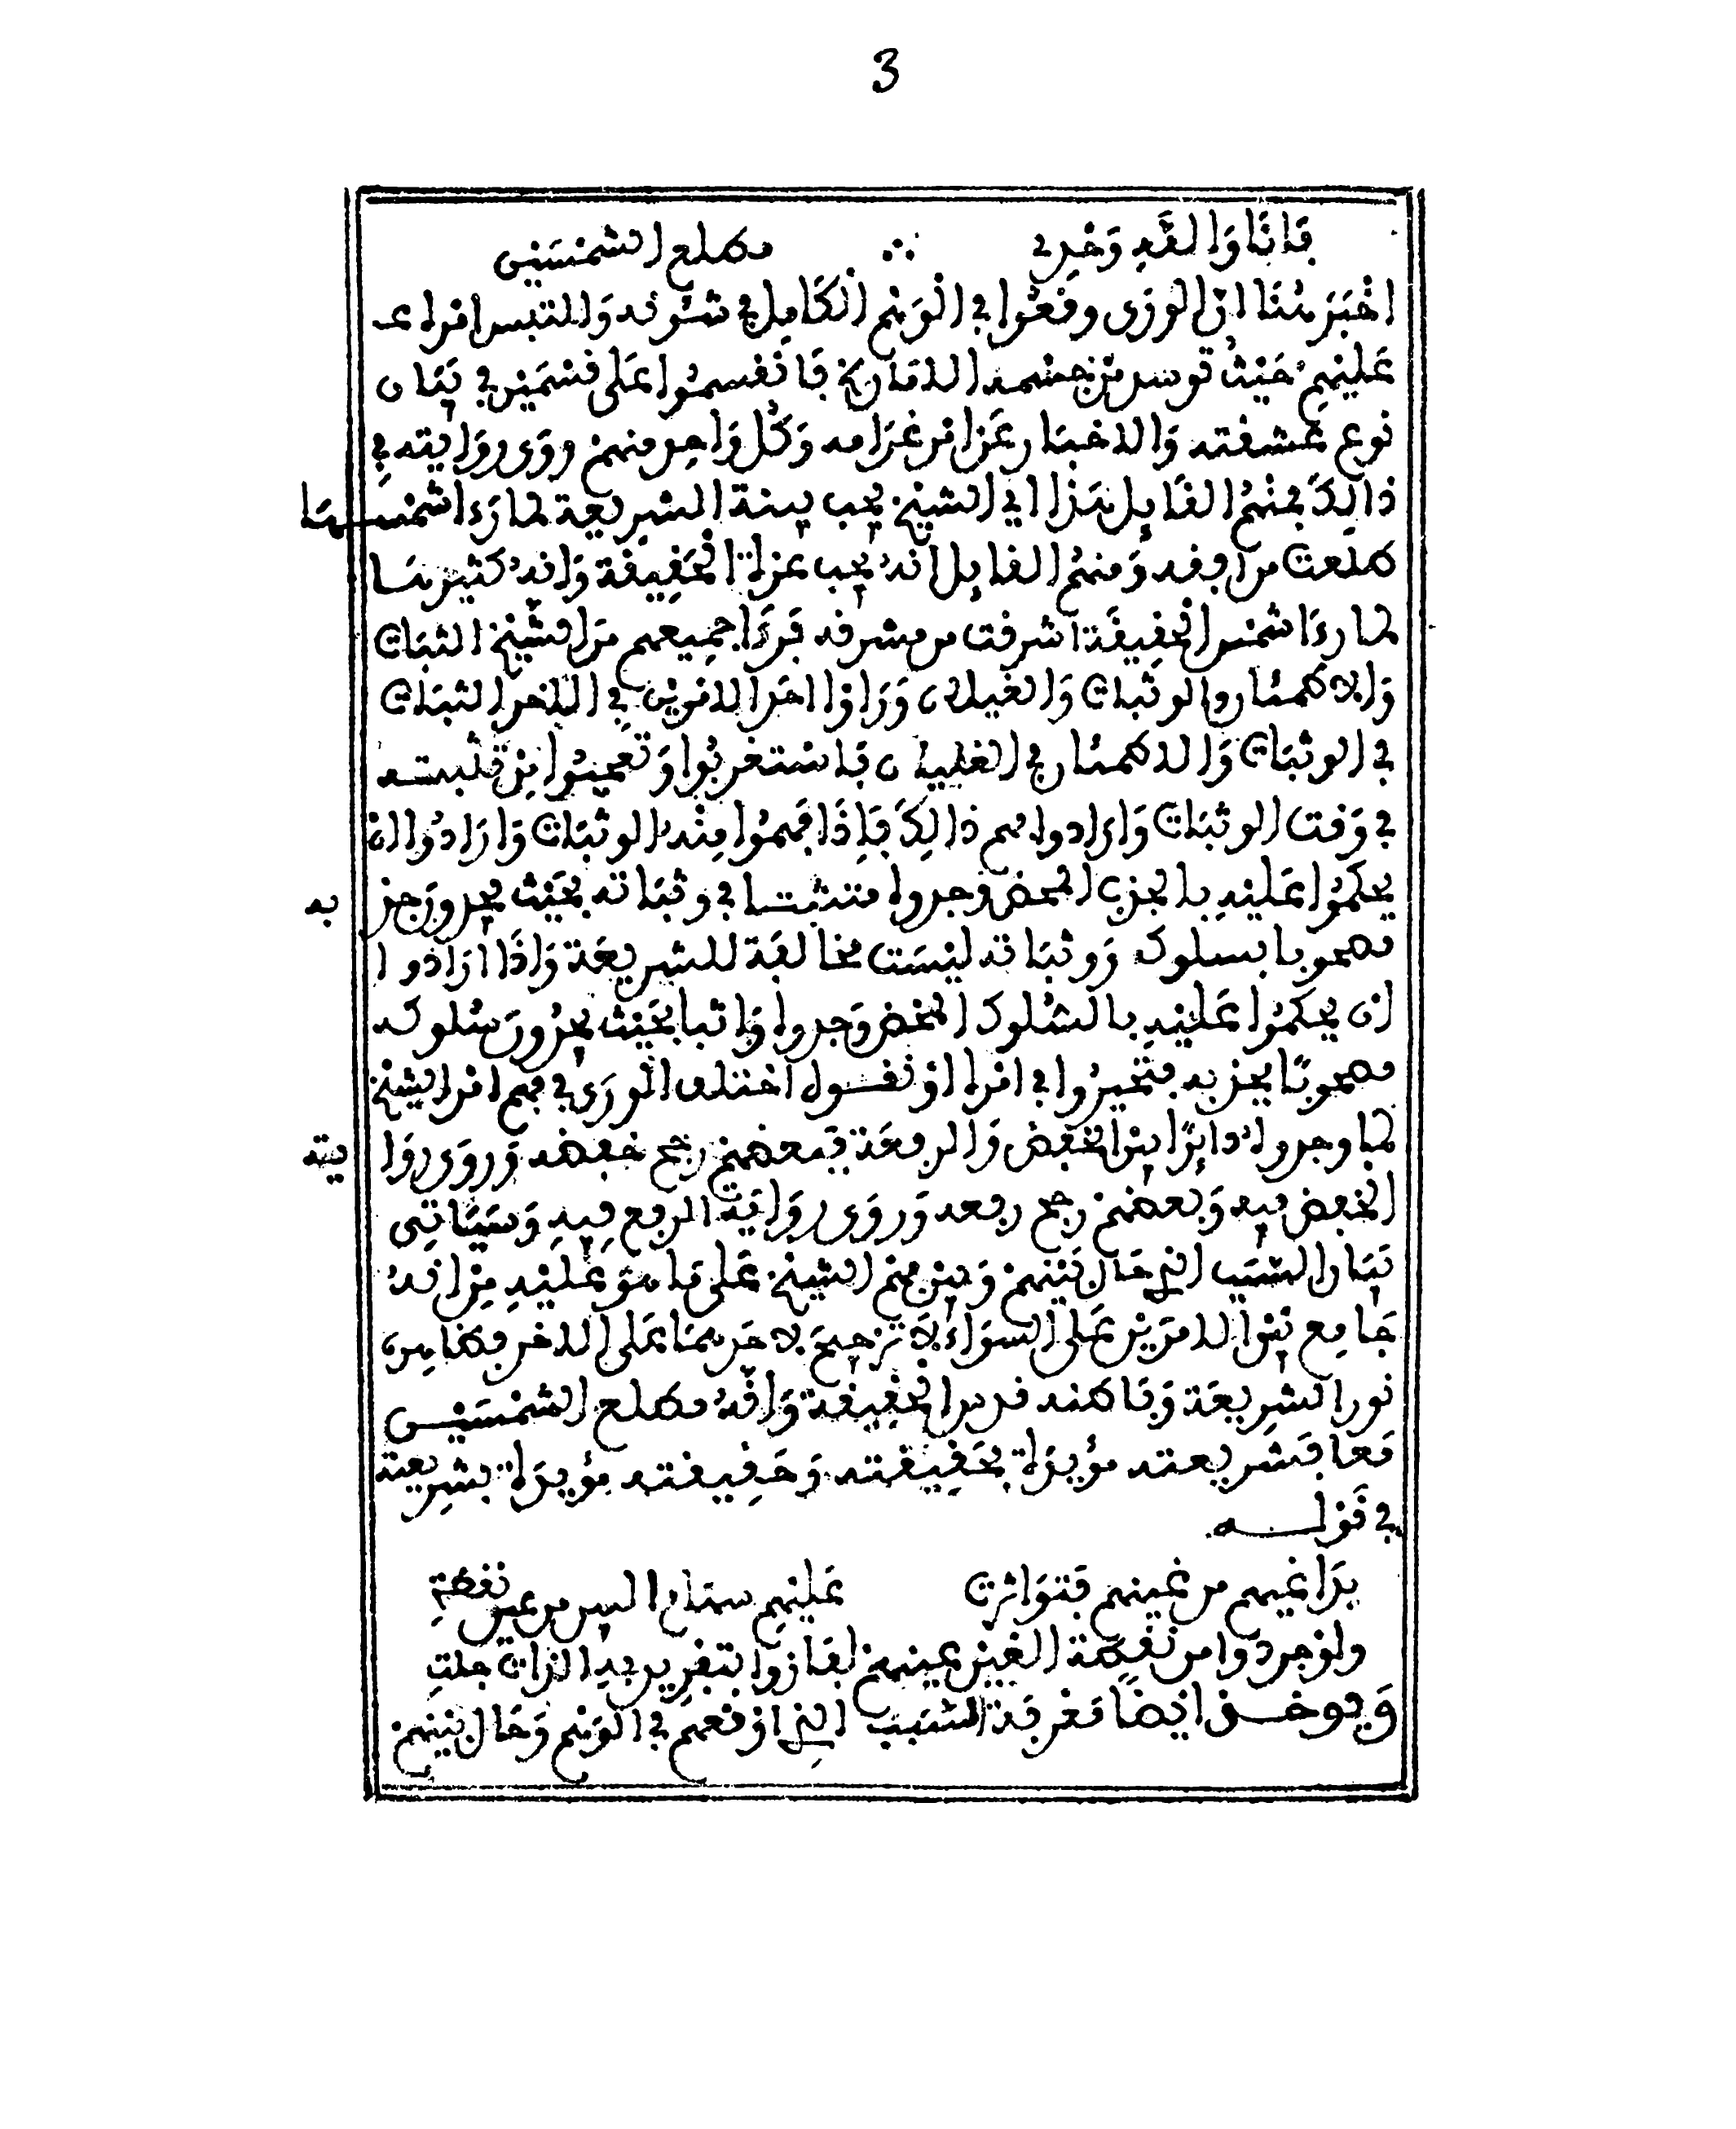 3
فَإنَّا وَاللَّهِ وَحْدِي ∴ مطلع الشمسين
اخْبَرَ هُنَا انّ الورَى وقعُوا في الْوَهْم الْكَامِل في شئونه وَالتبس امره عـ
عَليْهم حَيْثُ توسم من جسمه الامارخ فَانْقسمُوا عَلى قسْمَيْن في بَيَان
نوع عشقته وَالاخبار عَن امر غرامه وَكُل وَاحد منهم روى روايته في
ذالِكَ فمنْهُم القَايِل هَذا اي الشيْخ يحب بينة الشريعة لما رَءا شمسها
طلعت من افقه وَمنهُم القايل انهُ يحب عزة الحَقِيقَة وَانهُ كثيرها
لما رءَا شمْس الحقِيقَة اشرقت من مشرقه فَرَءَا جميعهم مِنَ الشيْخ الثبات
وَالاطمئنان والوثبات وَالغليان وَرَاوْا احَدَ الامرين في الاخر الثبات
في الوثبَات وَالاطمئنان في الغليان فَاستغربُوا وَتعجبُوا مِن تلبسه
في وَقت الوثبات وَارادوا فهم ذالِكَ فَإِذَا فهمُوا مِنْهُ الوثبَات وَارَادُوا ان
يحكمُوا عَليْهِ بالجذب المحض وجدوه متثبتا في وثبَاته بحَيْث يجدون جذبه
مصحوبا بسلوك وَوثبَاته ليْسَت مخالفَة للشريعَة وَاذَا ارَادُوا
ان يحكمُوا عَليْهِ بالسُّلوك المحْض وَجدوه وَاثبا بحَيْث يجدُونَ سُلوكه
مصحوبًا بجذبه فتحيرُوا في امْره اوْ نقول اختلف الْورَى في فهم امْر الشيْخ
لما وجدوه دايرًا بيْن الخفض وَالرفعَة فبعضهم رجح خفضه وَروَى روَايته
الخفض فيه وَبعضهم رجح رفعه وَروَى روَايَة الرفع فِيهِ وَسَيَاتِي
بيَان السبَب الذي حَال بَيْنهمْ وَبين فهْم الشيْخ عَلى مَا هوَ عَليْهِ مِن انهُ
جَامِع بَيْنَ الامرَيْن عَلى السوَاء لَا ترْجيحَ لاحَدهمَا عَلى الاخر فظاهره
نور الشريعَة وَباطنه قدس الحقِيقَة وَانهُ مطلع الشمْسَيْن
معا فشريعته مؤيدة بحَقِيقته وَحَقيقته مؤيدة بشريعته
في قوْله
بدَا غيهم من غيْنهم فتوَاترت عَليْهم سهَام السر من عين نقطة
ولوْ جردوا من نقطَة الغيْن عينهم لفازوا بتفريد بدا الذات جلت
وَيوخـذ ايْضًا مَعْرفَة السبَب الذي اوْقعهم في الوَهْم وَحَال بيْنهم